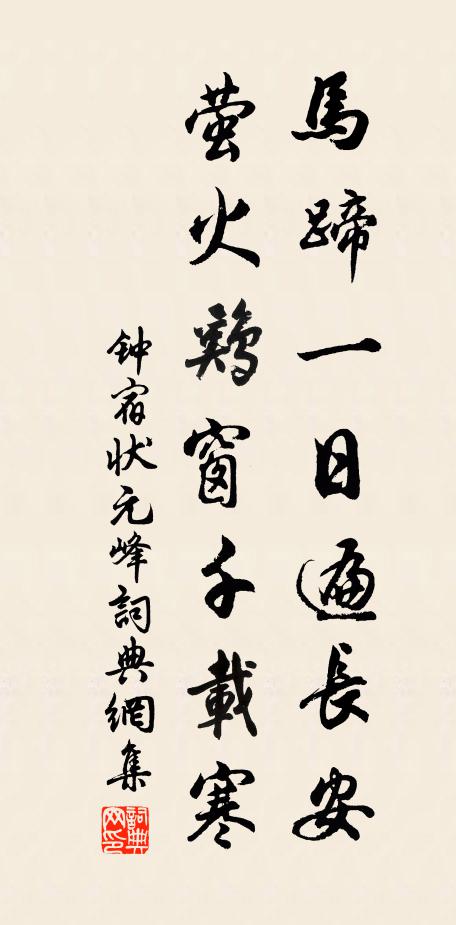 馬蹄一日遍長安
螢火鷄窗千載寒
鈡宿狀元峰詞典網集
詞典
网印